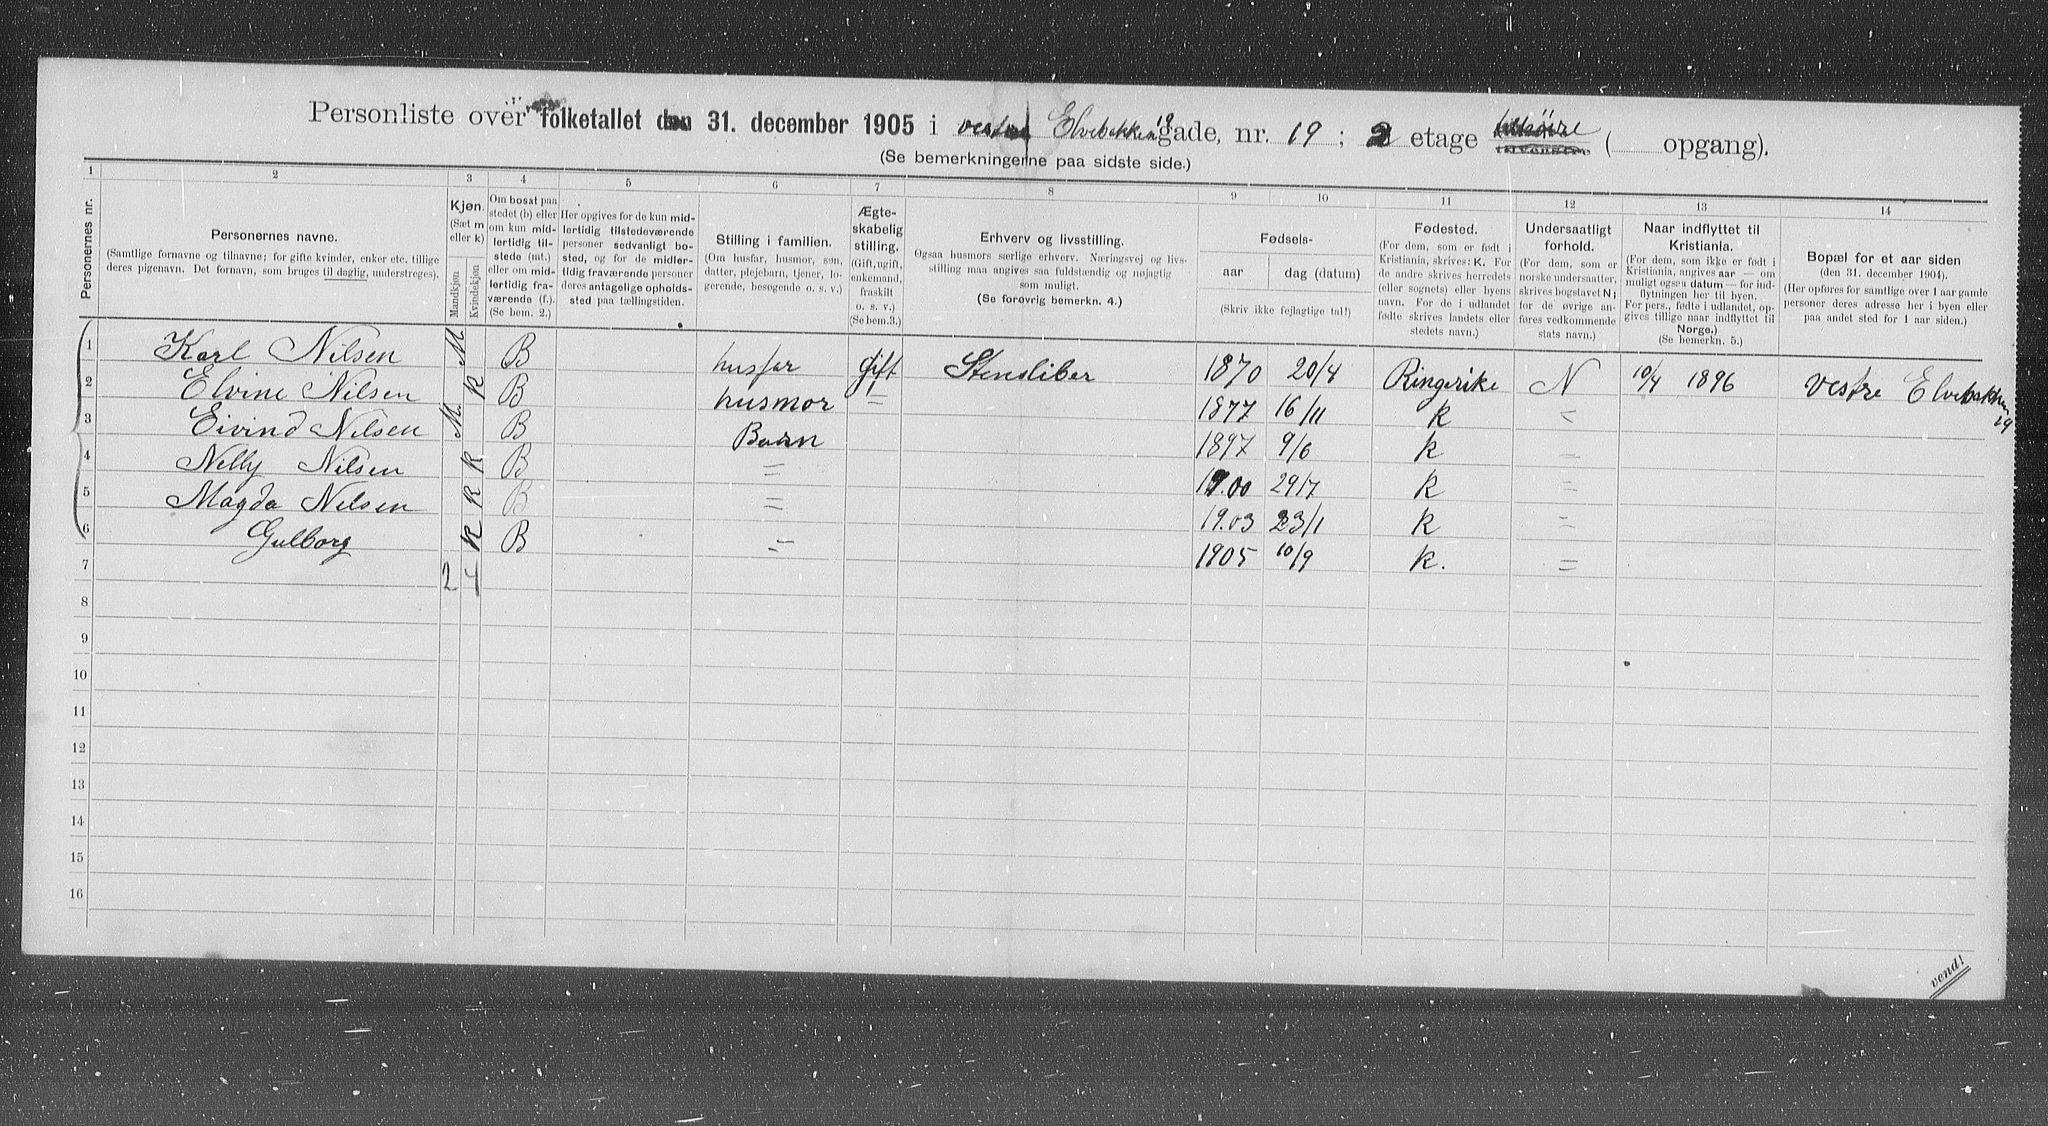 Personliste over folketallet den 31. december 1905 i vestre Elvebakken 19 gade, nr. 19 ; 2 etage (    opgang).
(Se bemerkningerne paa sidste side.)
1 2 3 4 5 6 7 8 9 10 11 12 13 14
Personernes nr.
Personernes navne.
(Samtlige fornavne og tilnavne; for gifte kvinder, enker etc. tillige
deres pigenavn. Det fornavn, som bruges til daglig, understreges).
Kjøn.
(Sæt m
eller k)
Mandkjøn
Kvindekjøn
Om bosat paa
stedet (b) eller
om kun mid-
lertidig til-
stede (mt.)
eller om mid-
lertidig fra-
værende (f.).
(Se bem. 2.)
Her opgives for de kun mid-
lertidig tilstedeværende
personer sedvanligt bo-
sted, og for de midler-
tidig fraværende personer
deres antagelige opholds-
sted paa tællingstiden.
Stilling i familien.
(Om husfar, husmor, søn,
datter, plejebarn, tjener, lo-
gerende, besøgende o. s. v.)
Ægte-
skabelig
stilling.
(Gift, ugift,
enkemand,
fraskilt
o. s. v.)
(Se bem. 3.)
Erhverv og livsstilling.
Ogsaa husmors særlige erhverv. Næringsvej og livs-
stilling maa angives saa fuldstændig og nøjagtig
som muligt.
(Se forøvrig bemerkn. 4.)
Fødsels-
aar dag (datum)
(Skriv ikke fejlagtige tal!)
Fødested.
(For dem, som er født i
Kristiania, skrives: K. For
de andre skrives herredets
(eller sognets) eller byens
navn. For de i udlandet
fødte skrives landets eller
stedets navn.)
Undersaatligt
forhold.
(For dem, som er
norske undersaatter,
skrives bogstavet N;
for de øvrige an-
føres vedkommende
stats navn.)
Naar indflyttet til
Kristiania.
(For dem, som ikke er født i
Kristiania, angives aar — om
muligt ogsaa datum — for ind-
flytningen her til byen.
For pers., fødte i udlandet, op-
gives tillige naar indflyttet til
Norge.)
(Se bemerkn. 5.)
Bopæl for et aar siden
(den 31. december 1904).
(Her opføres for samtlige over 1 aar gamle
personer deres adresse her i byen eller
paa andet sted for 1 aar siden.)
1 Karl Nilsen M B husfar Gift Stensliber 1870 20/4 Ringerike N 10/4 1896 Vestre Elvebakken 19
2 Elvine Nilsen K B husmor = 1877 16/11 K =
3 Eivind Nilsen M. B Barn 1897 9/6 K =
4 Nelly Nilsen K B = 1900 29/7 K =
5 Magda Nilsen K B = 19.03 23/1 K =
6 Gulborg K B = 1905 10/9 K. =
7 2 4
8
9
10
11
12
13
14
15
16
vend!